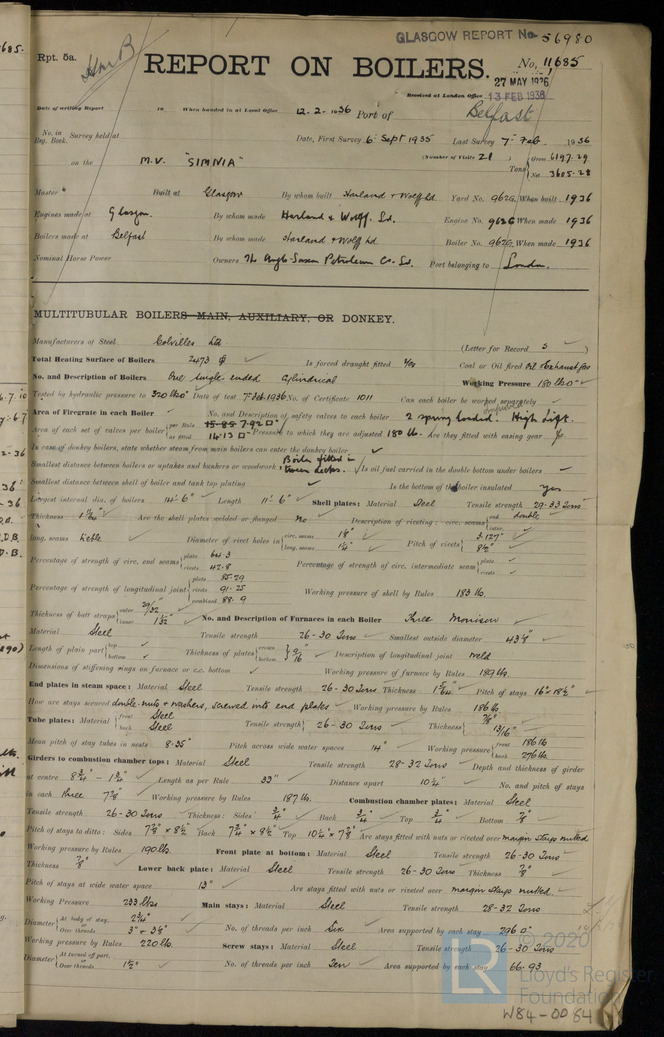 GLASGOW REPORT No 56980
Rpt. 5a.
REPORT ON BOILERS.
No. 11685
27 MAY 1936
Received at London Office 13 FEB 1936
Date of writing Report 19 When handed in at Local Office 12-2-1936 Port of Belfast
No. in Reg. Book. Survey held at Date, First Survey 6 Sept 1935 Last Survey 7 Feb 1936
(Number of Visits 21) Gross 6197.29
on the M.V. "SIMNIA" Tons Net 3605.28
Master Built at Glasgow By whom built Harland & Wolff Ld. Yard No. 962G When built 1936
Engines made at Glasgow. By whom made Harland & Wolff. Ld. Engine No. 962G When made 1936
Boilers made at Belfast By whom made Harland & Wolff Ld Boiler No. 962G When made 1936
Nominal Horse Power Owners The Anglo-Saxon Petroleum Co. Ld. Port belonging to London.
MULTITUBULAR BOILERS MAIN, AUXILIARY, OR DONKEY.
Manufacturers of Steel Colvilles Ld (Letter for Record S)
Total Heating Surface of Boilers 2473 Is forced draught fitted Coal or Oil fired Oil Exhaust gas
No. and Description of Boilers One single-ended Cylindrical Working Pressure 180 lbs
Tested by hydraulic pressure to 320 lbs Date of test 7 Feb 1936 No. of Certificate 1011 Can each boiler be worked separately
Area of Firegrate in each Boiler No. and Description of safety valves to each boiler 2 spring loaded. High Lift.
Area of each set of valves per boiler per Rule 15.85 7.92 as fitted 14.13 Pressure to which they are adjusted 180 lb. Are they fitted with easing gear
In case of donkey boilers, state whether steam from main boilers can enter the donkey boiler
Smallest distance between boilers or uptakes and bunkers or woodwork Boiler fitted in tween decks. Is oil fuel carried in the double bottom under boilers
Smallest distance between shell of boiler and tank top plating Is the bottom of the boiler insulated yes
Largest internal dia. of boilers 14'-6" Length 11'-6" Shell plates: Material Steel Tensile strength 29-33 Tons
Thickness Are the shell plates welded or flanged No Description of riveting: circ. seams end double inter.
long. seams treble Diameter of rivet holes in circ. seams 1⅛" long. seams 1¼" Pitch of rivets 3.127" 8½"
Percentage of strength of circ. end seams plate 64.3 rivets 42.8 Percentage of strength of circ. intermediate seam plate rivets
Percentage of strength of longitudinal joint plate 85.29 rivets 91.25 combined 88.9 Working pressure of shell by Rules 183 lb.
Thickness of butt straps outer inner No. and Description of Furnaces in each Boiler Three Morison
Material Steel Tensile strength 26-30 Tons Smallest outside diameter
Length of plain part top bottom Thickness of plates crown bottom 9/16" Description of longitudinal joint weld
Dimensions of stiffening rings on furnace or c.c. bottom Working pressure of furnace by Rules 189 lb.
End plates in steam space: Material Steel Tensile strength 26-30 Tons Thickness Pitch of stays 16" x 18½"
How are stays secured double nuts & washers, screwed into end plates Working pressure by Rules 186 lb
Tube plates: Material front Steel back Steel Tensile strength 26-30 Tons Thickness ⅞" 13/16"
Mean pitch of stay tubes in nests 8.35" Pitch across wide water spaces 14" Working pressure front 186 lb back 276 lb
Girders to combustion chamber tops: Material Steel Tensile strength 28-32 Tons Depth and thickness of girder
at centre 8¾" - 1¾" Length as per Rule 33" Distance apart 10¼" No. and pitch of stays
in each three 7⅞" Working pressure by Rules 187 lb. Combustion chamber plates: Material Steel
Tensile strength 26-30 Tons Thickness: Sides ¾" Back ¾" Top ¾" Bottom ⅞"
Pitch of stays to ditto: Sides 7⅞" x 8½" Back 7¾" x 8½" Top 10¼ x 7⅞" Are stays fitted with nuts or riveted over margin stays nutted
Working pressure by Rules 190 lb. Front plate at bottom: Material Steel Tensile strength 26-30 Tons
Thickness ⅞" Lower back plate: Material Steel Tensile strength 26-30 Tons Thickness ⅞"
Pitch of stays at wide water space 13" Are stays fitted with nuts or riveted over margin stays nutted.
Working Pressure 233 lbs Main stays: Material Steel Tensile strength 28-32 Tons
Diameter At body of stay, 2¾" Over threads No. of threads per inch Six Area supported by each stay 296
Working pressure by Rules 220 lb. Screw stays: Material Steel Tensile strength 26-30 Tons
Diameter At turned off part, Over threads 1½" No. of threads per inch Ten Area supported by each stay 66.93
LR © 2020 Lloyd's Register Foundation
W84-0064